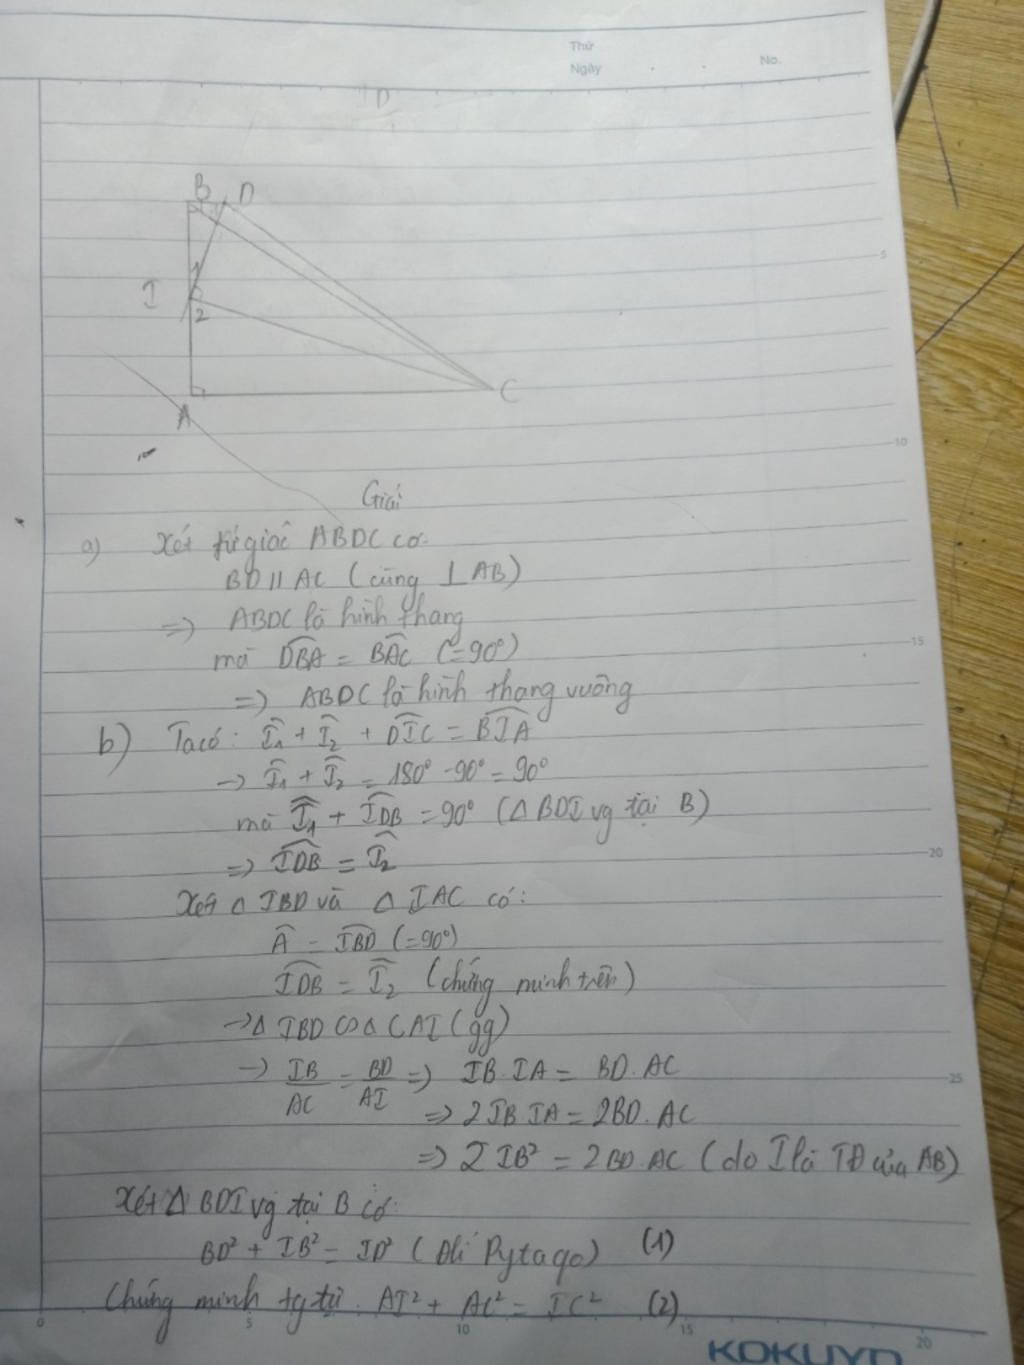 Thứ
Ngày
No.
D
B D
1
I
2
A
C
5
10
Giải
a) Xét tứ giác ABDC có:
BD // AC (cùng ⊥ AB)
=> ABDC là hình thang
15
mà \widehat{DBA} = \widehat{BAC} (=90°)
=> ABDC là hình thang vuông
b) Ta có: \widehat{I}₁ + \widehat{I}₂ + \widehat{DIC} = \widehat{BIA}
→ \widehat{I}₁ + \widehat{I}₂ = 180° - 90° = 90°
mà \widehat{I}₁ + \widehat{IDB} = 90° (Δ BDI vg tại B)
=> \widehat{IDB} = \widehat{I}₂
20
Xét Δ IBD và Δ IAC có:
\widehat{A} = \widehat{IBD} (=90°)
\widehat{IDB} = \widehat{I}₂ (chứng minh trên)
→ Δ IBD ∽ Δ CAI (gg)
→ IB/AC = BD/AI => IB.IA = BD.AC
25
=> 2IB.IA = 2BD.AC
=> 2IB² = 2BD.AC (do I là TĐ của AB)
Xét Δ BDI vg tại B có:
BD² + IB² = ID² (Đlí Pytago) (1)
Chứng minh tg tự: AI² + AC² = IC² (2)
0 5 10 15 20
KOKUYO